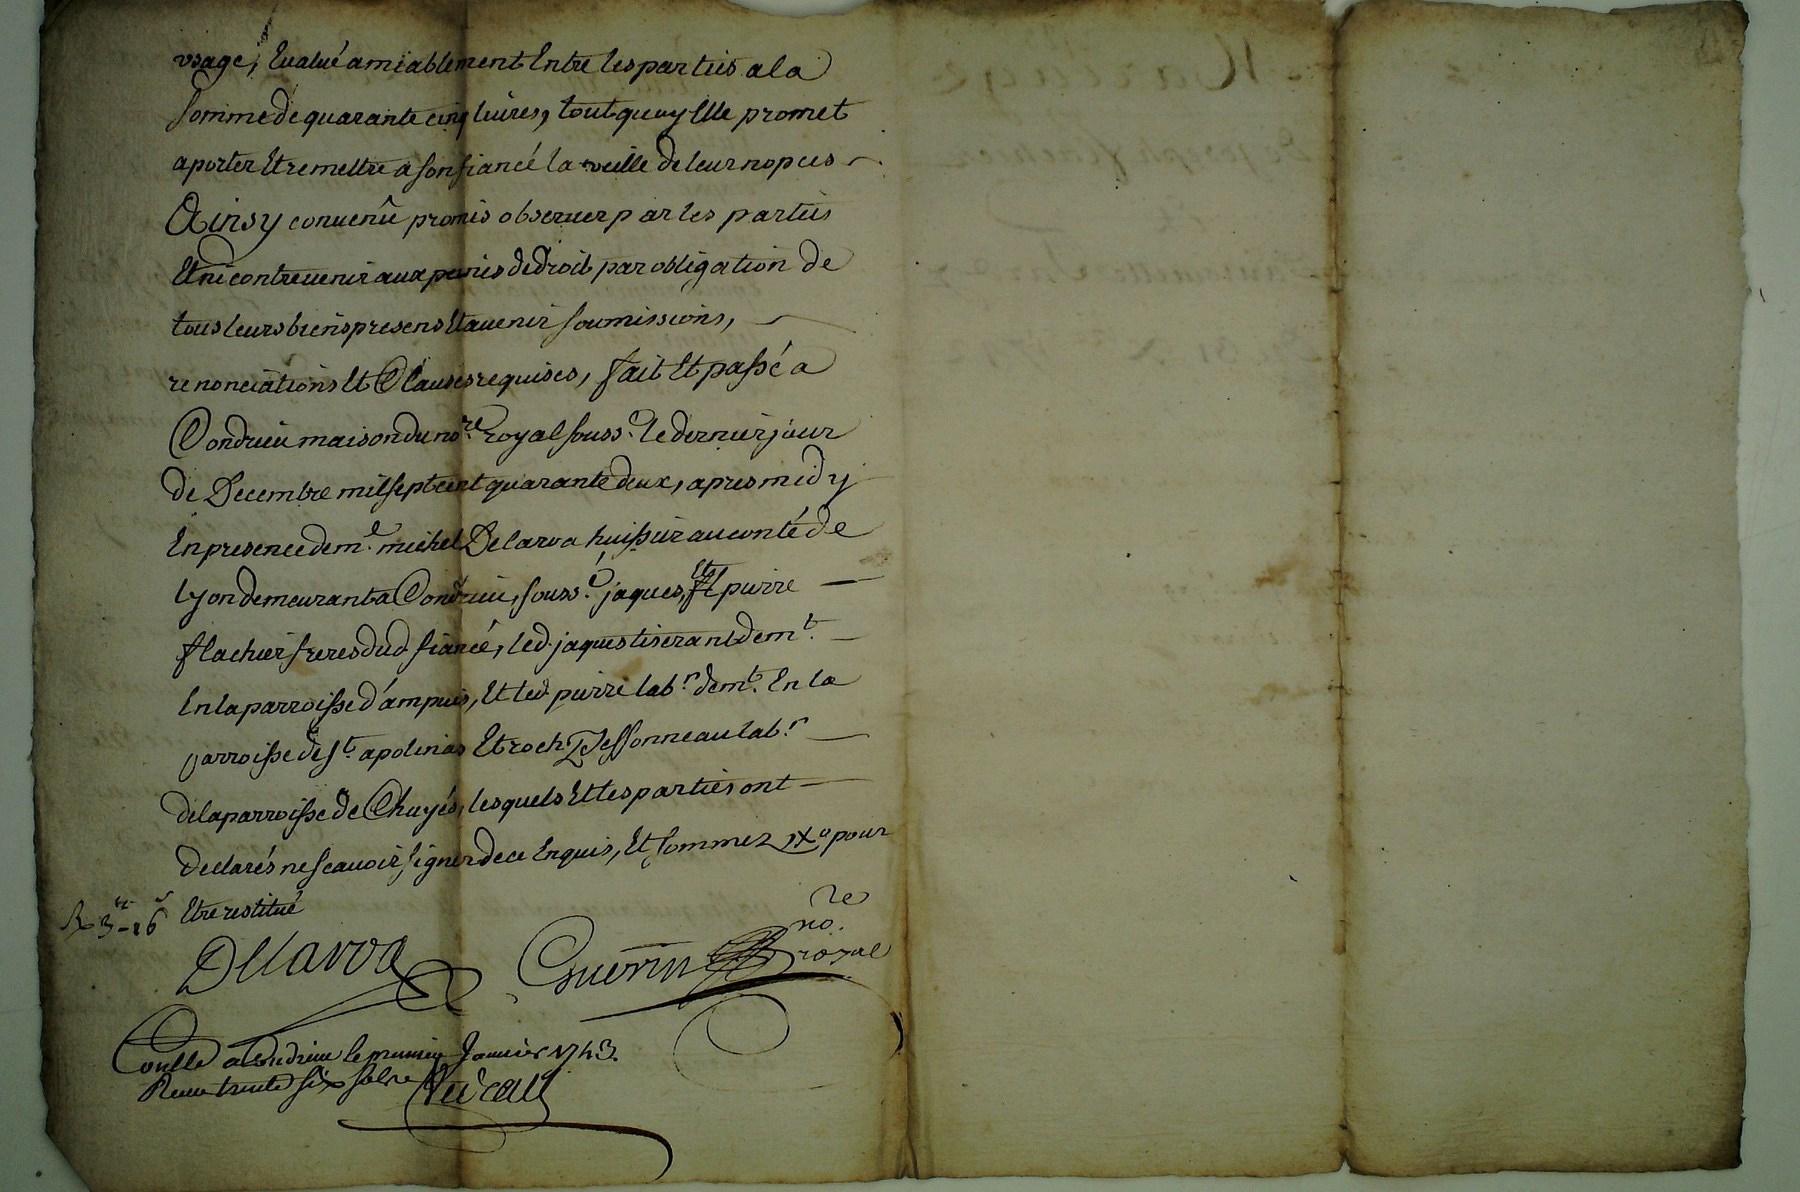 usage, Evalué amiablement Entre les parties a la
somme de quarante cinq livres, tout quoy Elle promet
aporter Et remettre a son fiancé la veille de leur nopces
Ainsy convenû promis observer par les parties
Et ni contrevenir aux peines de droit par obligation de
tous leurs biens presens Et avenir soumissions,
renonciations Et Clauses requises, fait Et passé a
Condrieu maison du no.re royal souss.é le dernier jour
de Decembre mil sept cent quarante deux, apres midy
En presence de m.e michel Delarva huissier au conté de
lyon demeurant a Condrieu, souss.é jaques, Et pierre
flachier freres dud fiancé, led. jaques tiserant dem.t
En la parroisse d'ampuis, Et led pierre lab.r dem.t En la
parroisse de s.t apolinas Et roch Dessonneau lab.r
de la parroisse de Chuyés, lesquels Et les parties ont
declarés ne scavoir signer de ce Enquis, Et sommez pour
Etre restitué
3-16
Delarva Guerin no.re royal
Conllé a Condrieu le premier Janvier 1743.
Receu trente six sols